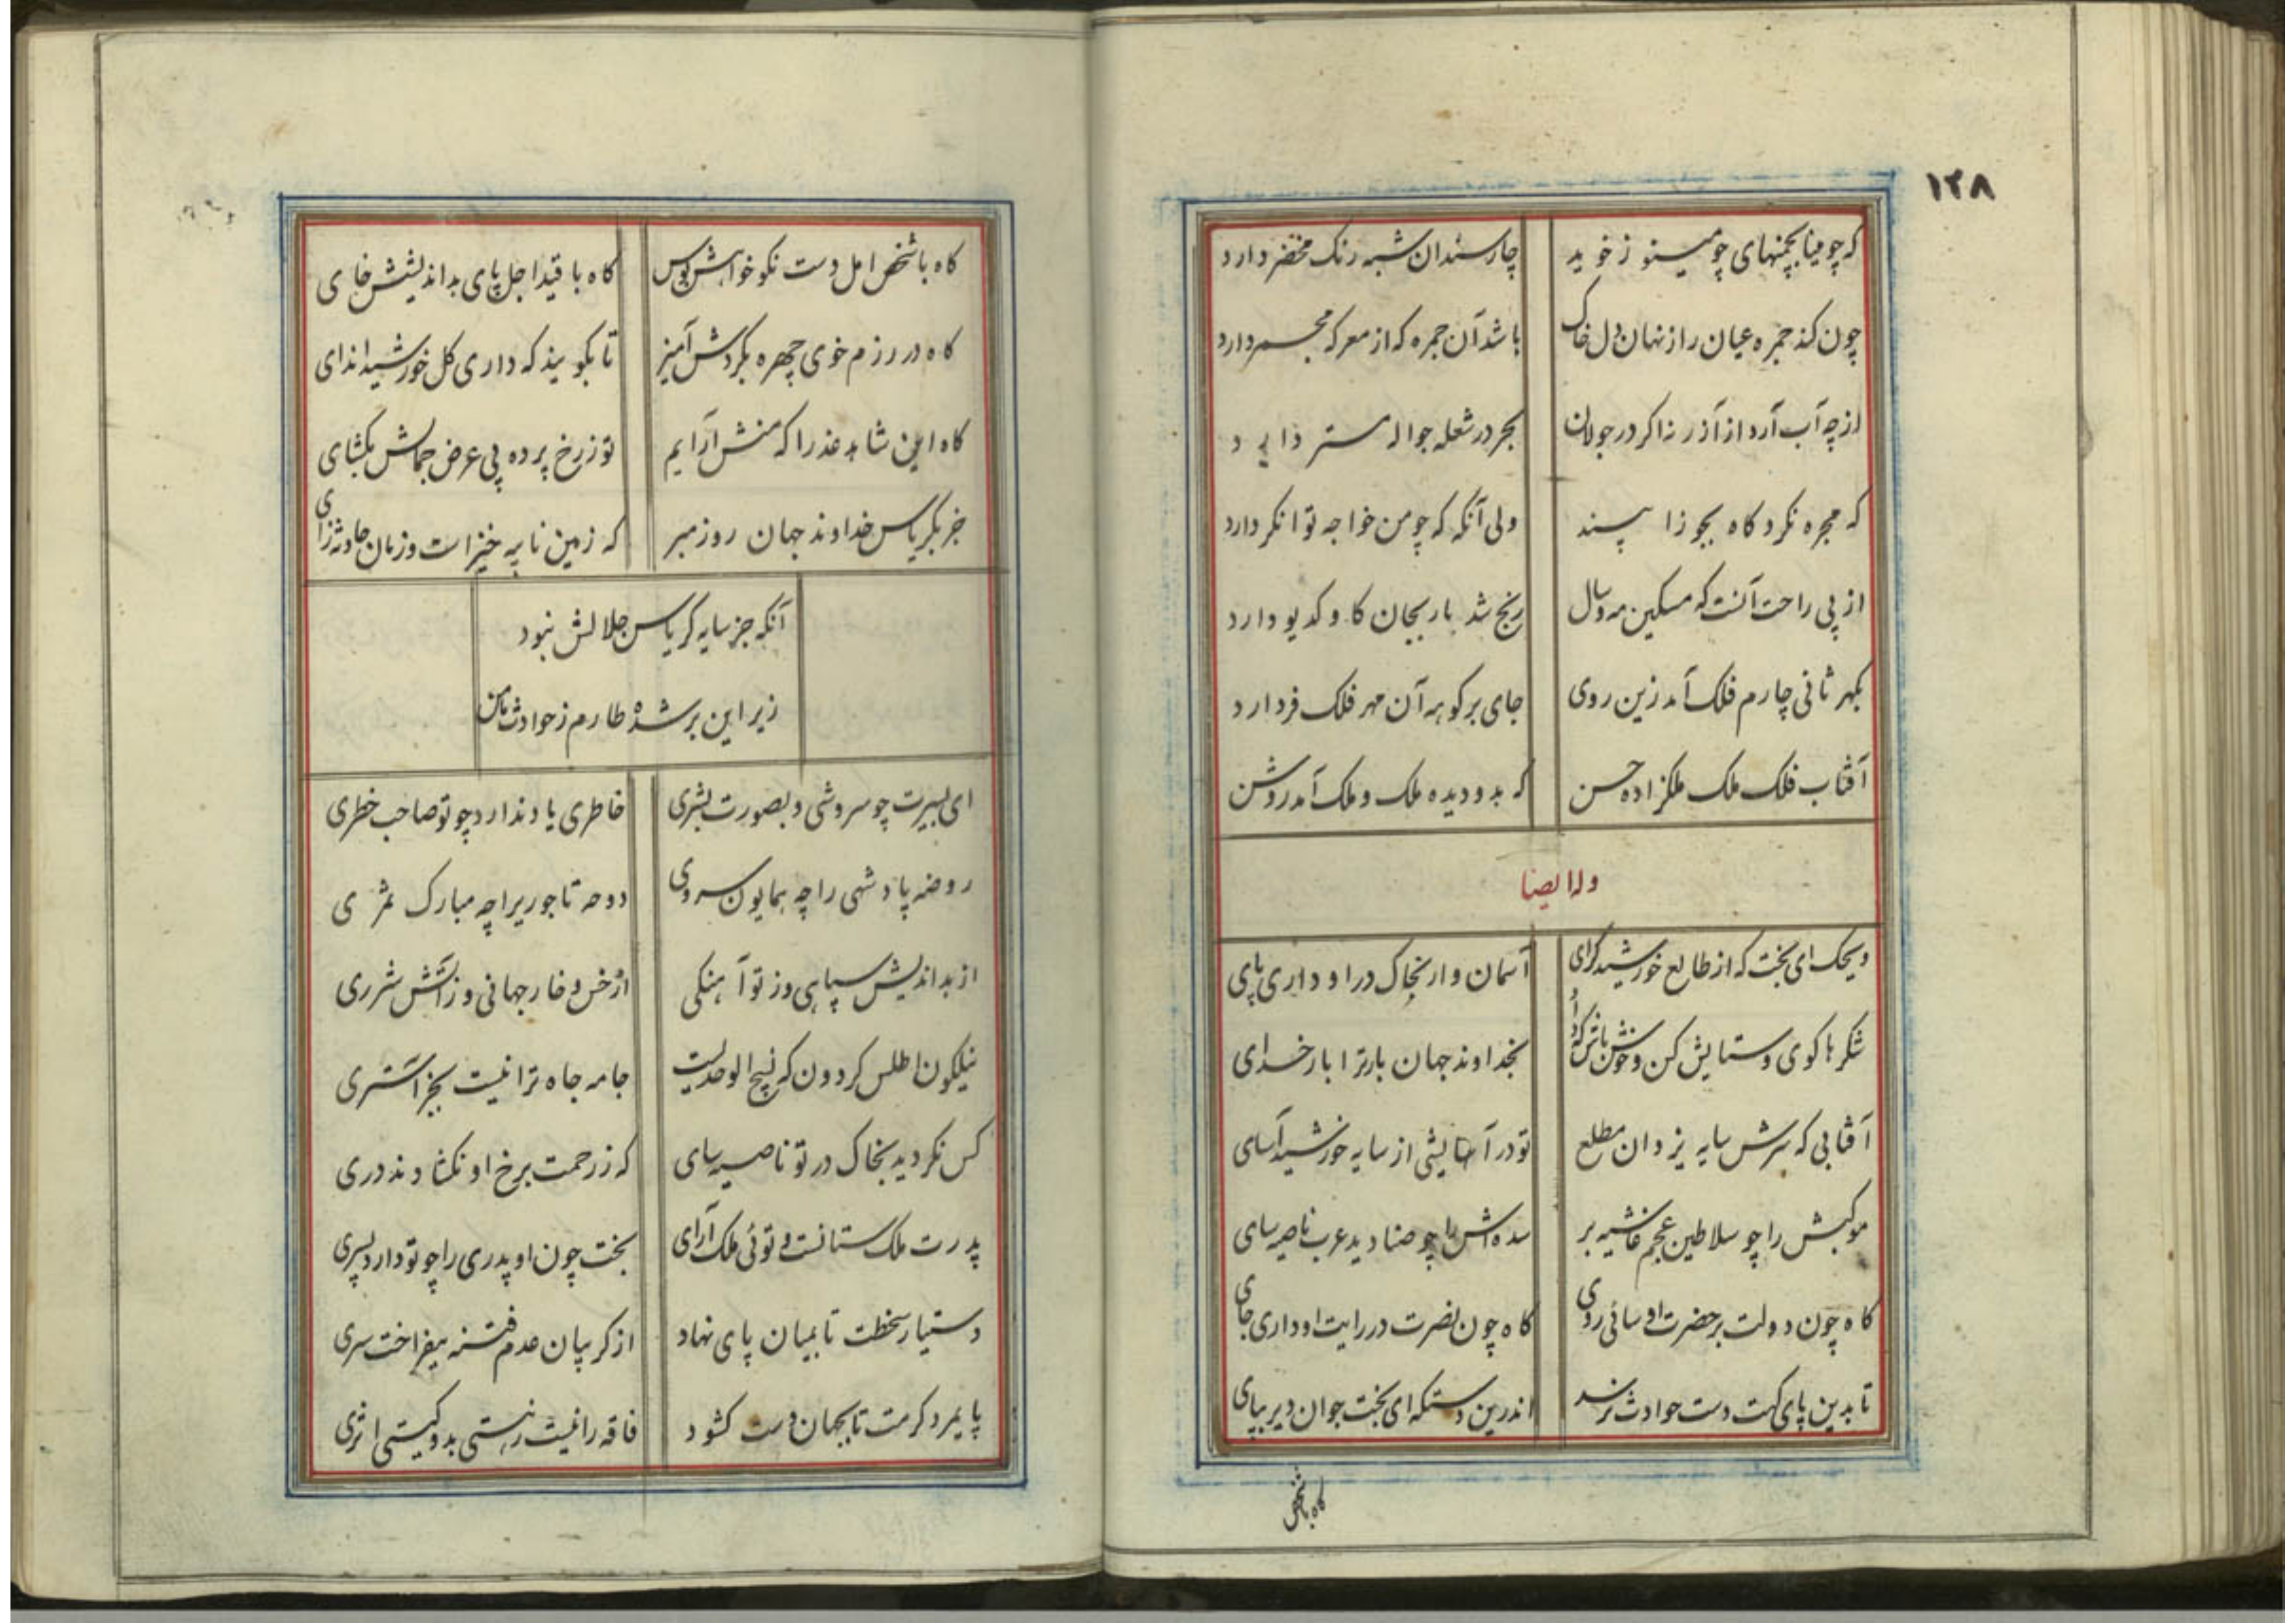 ۱۲۸
که چو مینا بچمنهای چو مینو ز خوید چار سندان شبه رنک مخضر دارد
چون کند جمره عیان راز نهان دل خاک باشد آن جمره که از معرکه مجمر دارد
از چه آب آرد از آذر نه اکر در جولان بحر در شعله جواله مستر دارد
که مجره نکرد کاه بجوزا سپند ولی آنکه که چو من خواجه توانکر دارد
از پی راحت آنست که مسکین مه و سال رنج شد بار بجان کاو کدیور دارد
بمهر ثانی چارم فلک آمد زین روی جای بر کوهه آن مهر فلک فر دارد
آفتاب فلک ملک ملکزاده حسن که بدو دیده ملک و ملک آمد روشن
وله ایضا
ویحک ای بخت که از طالع خورشید کرای آسمان وار بخاک در او داری پای
شکرها کوی و ستایش کن و خوش باش که داد بخداوند جهان بار ترا بار خدای
آفتابی که سرش سایه یزدان مطلع تو در آسایشی از سایه خورشید آسای
موکبش را چو سلاطین عجم غاشیه بر سده اش را چو صنادید عرب ناصیه سای
کاه چون دولت بر حضرت او سائی روی کاه چون نصرت در رایت او داری جای
تا بدین پای کهت دست حوادث نرسد اندرین دستکه ای بخت جوان دیر بپای
کاه با شخص
کاه با شخص امل دست نکو خواهش بوس کاه با قید اجل پای بداندیشش خای
کاه در رزم خوی چهره بکردش آمیز تا بکویند که داری کل خورشید اندای
کاه این شاهد عذرا که منش آرایم تو ز رخ پرده پی عرض جمالش بکشای
جز بکریاس خداوند جهان روز مبر که زمین نایبه خیز است و زمان حادثه زای
آنکه جز سایه کریاس جلالش نبود
زیر این بر شده طارم ز حوادث مامن
ای بسیرت چو سروشی و بصورت بشری خاطری یاد ندارد چو تو صاحب خطری
روضه پادشهی را چه همایون سروی دوحه تاجوریرا چه مبارک ثمری
از بداندیش سپاهی و ز تو آهنکی از خس و خار جهانی و ز آتش شرری
نیلکون اطلس کردون که نسیج الوحدیست جامه جاه ترا نیست بجز آستری
کس نکردید بخاک در تو ناصیه سای که ز رحمت برخ او نکشادند دری
پدرت ملک ستانست و توئی ملک آرای بخت چون او پدری را چو تو دارد پسری
دستیار سخطت تا بمیان پای نهاد از کریبان عدم فتنه بیفراخت سری
پایمرد کرمت تا بجهان دست کشود فاقه را نیست ز هستی بدو کیتی اثری